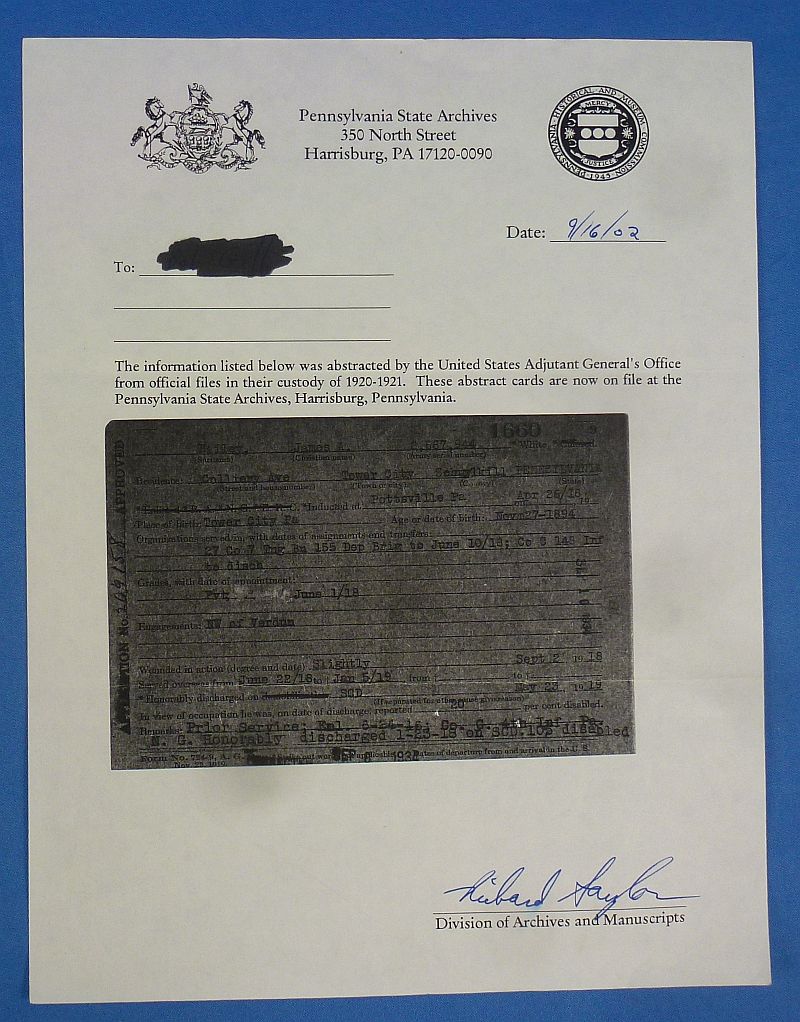 Pennsylvania State Archives
350 North Street
Harrisburg, PA 17120-0090
PENNSYLVANIA HISTORICAL AND MUSEUM COMMISSION
MERCY
JUSTICE
1945
Date: 9/16/02
To:
The information listed below was abstracted by the United States Adjutant General's Office
from official files in their custody of 1920-1921. These abstract cards are now on file at the
Pennsylvania State Archives, Harrisburg, Pennsylvania.
1660
James A. 2,667,944 * White * Colored
(Surname) (Christian name) (Army serial number)
Residence: Colliery Ave Tower City Schuylkill PENNSYLVANIA
(Street and house number) (Town or city) (County) (State)
* Inducted at Pottsville Pa Apr 26/18 19
Place of birth: Tower City Pa Age or date of birth: Nov 27-1894
Organizations served in, with dates of assignments and transfers:
27 Co 7 Tng Bn 155 Dep Brig to June 10/18; Co G 148 Inf
to disch
Grades, with date of appointment:
Pvt June 1/18
Engagements: NW of Verdun
Wounded in action (degree and date) Slightly Sept 2 1918
Served overseas from June 22/18 to Jan 5/19 from to
* Honorably discharged on SCD May 23 1919
In view of occupation he was, on date of discharge, reported 20 per cent disabled.
Remarks: Prior Service; Enl. 6-24-16; Co. G. 4th Inf. Pa.
N. G. Honorably discharged 1-23-18 on SCD.10% disabled
Form No. 724-8, A. G. O. dates of departure from and arrival in the U. S.
APPROVED
Richard Saylor
Division of Archives and Manuscripts